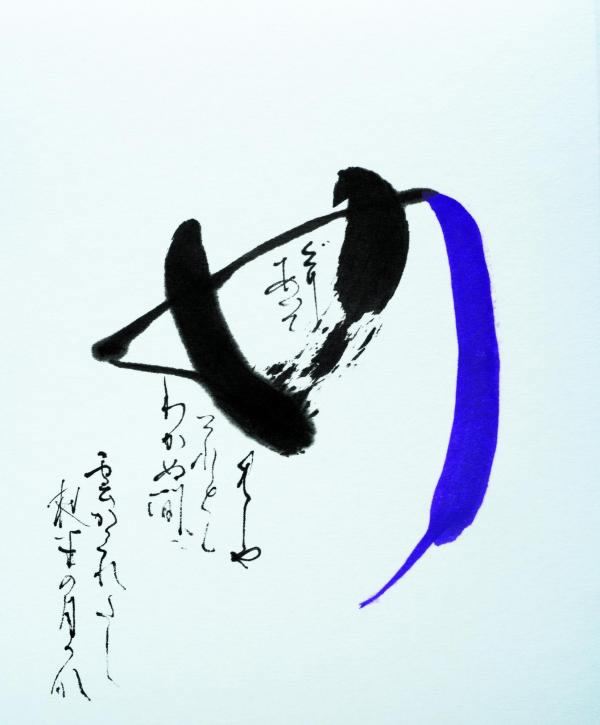 め
ぐり
あひて
見しや
それとも
わかぬ間に
雲かくれにし
夜半の月かな